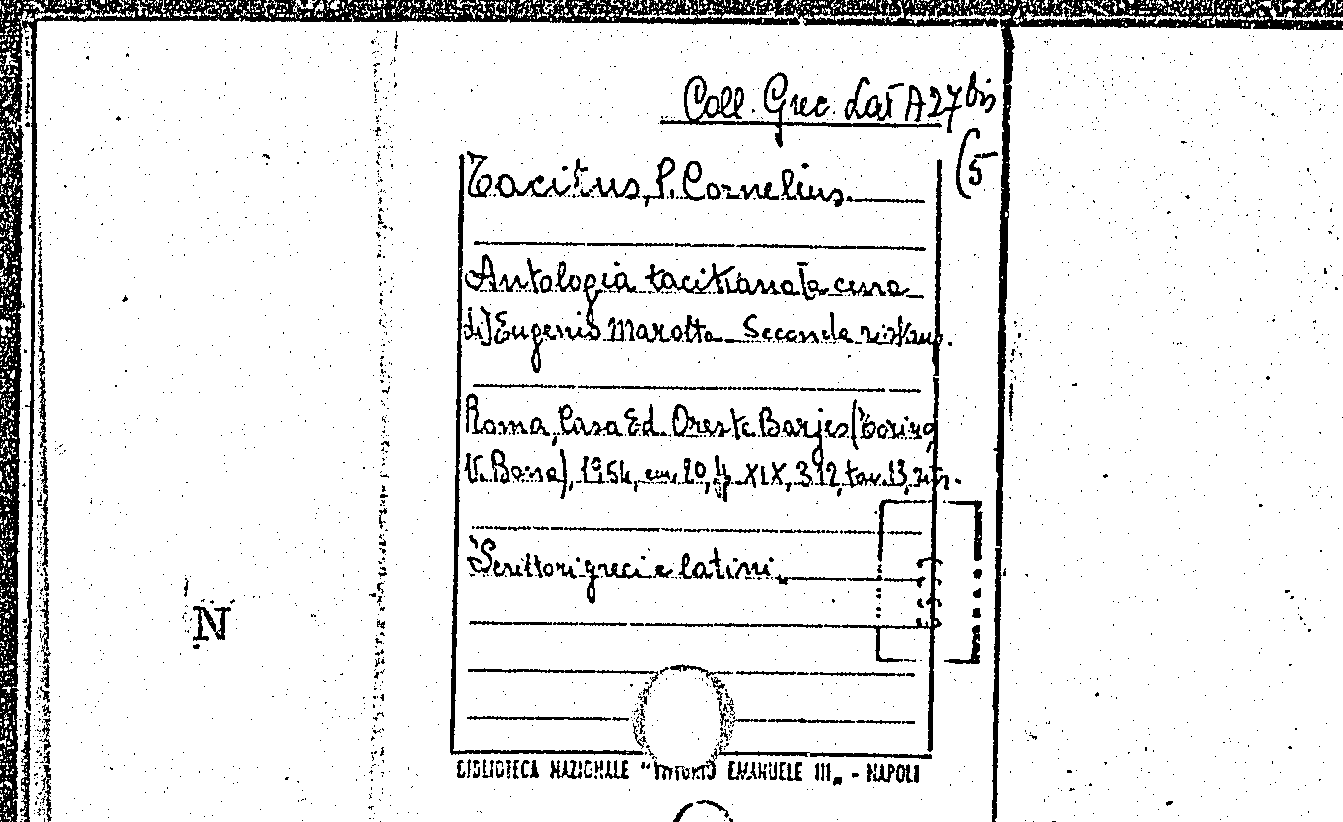 Coll. Grec. Lat A 27 bis
(5
Tacitus, P. Cornelius.
Antologia tacitiana [a cura
di] Eugenio Marotta Seconda ristamp.
Roma, Casa Ed. Oreste Barjes (Torino,
V. Bona), 1954, cm. 20, XIX, 312, tav. 13,
Scrittori greci e latini.
N
BIBLIOTECA NAZIONALE "VITTORIO EMANUELE III„ - NAPOLI